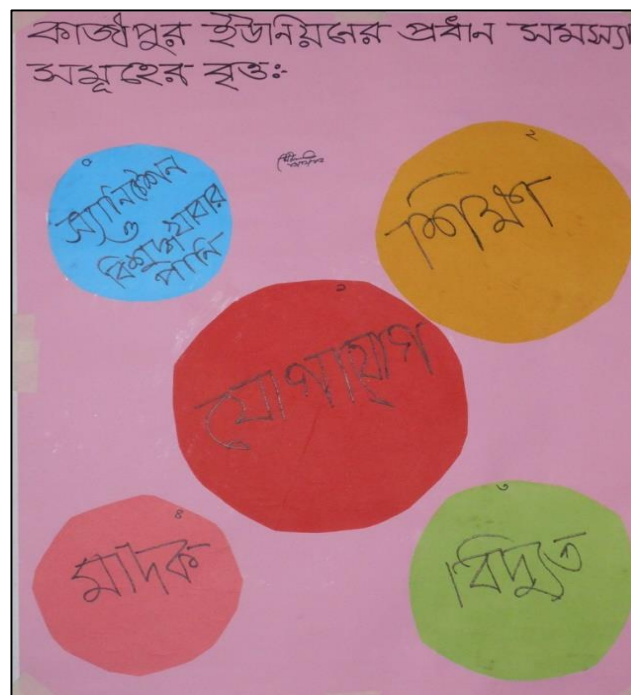 কাজীপুর ইউনিয়নের প্রধান সমস্যা
সমূহের বৃত্তঃ-
৫
স্যানিটেশন
ও
বিশুদ্ধ খাবার
পানি
২
শিক্ষা
১
যোগাযোগ
৪
মাদক
৩
বিদ্যুত